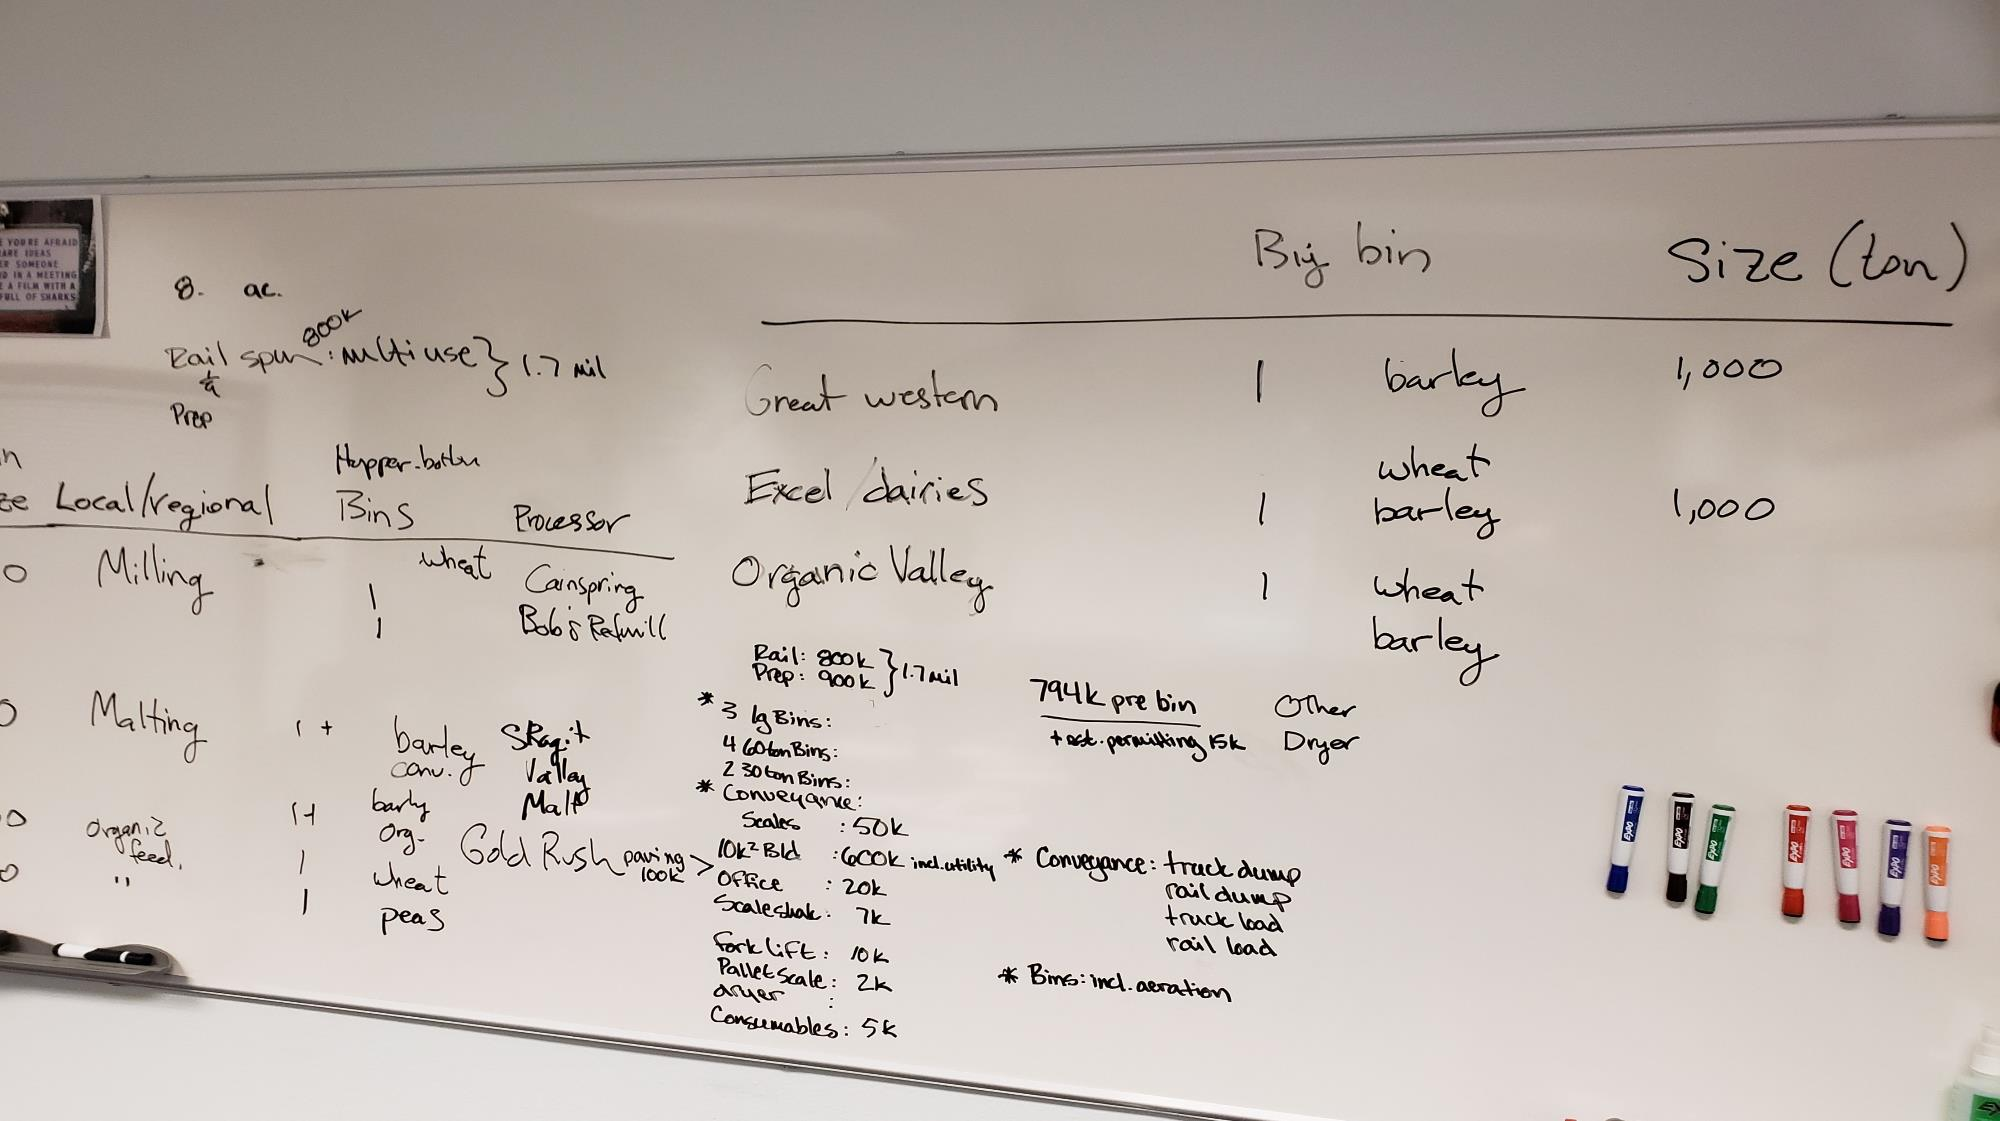 YOU'RE AFRAID
ARE IDEAS
SOMEONE
IN A MEETING
A FILM WITH A
FULL OF SHARKS
8. ac.
800k
Rail spur: multi use } 1.7 mil
&
Prep
Hopper-bottom
Local/regional Bins Processor
Milling wheat Cairnspring
1
1 Bob's Redmill
Malting 1+ barley Skagit
conv. Valley
1+ barly Malt
org.
organic feed. 1 wheat
" 1 peas
Gold Rush paving 100k >
Big bin Size (ton)
Great western 1 barley 1,000
wheat
Excel/dairies 1 barley 1,000
Organic Valley 1 wheat
barley
Rail: 800k
Prep: 900k } 1.7 mil
* 3 lg Bins:
4 60ton Bins:
2 30ton Bins:
* Conveyance:
Scales : 50k
10k² Bld : 600k incl. utility
Office : 20k
Scaleshak: 7k
fork lift: 10k
Pallet scale: 2k
dryer :
Consumables: 5k
794k pre bin
+ est. permitting 15k
Other
Dryer
* Conveyance: truck dump
rail dump
truck load
rail load
* Bins: incl. aeration
EXPO
EXPO
EXPO
EXPO
EXPO
EXPO
EXPO